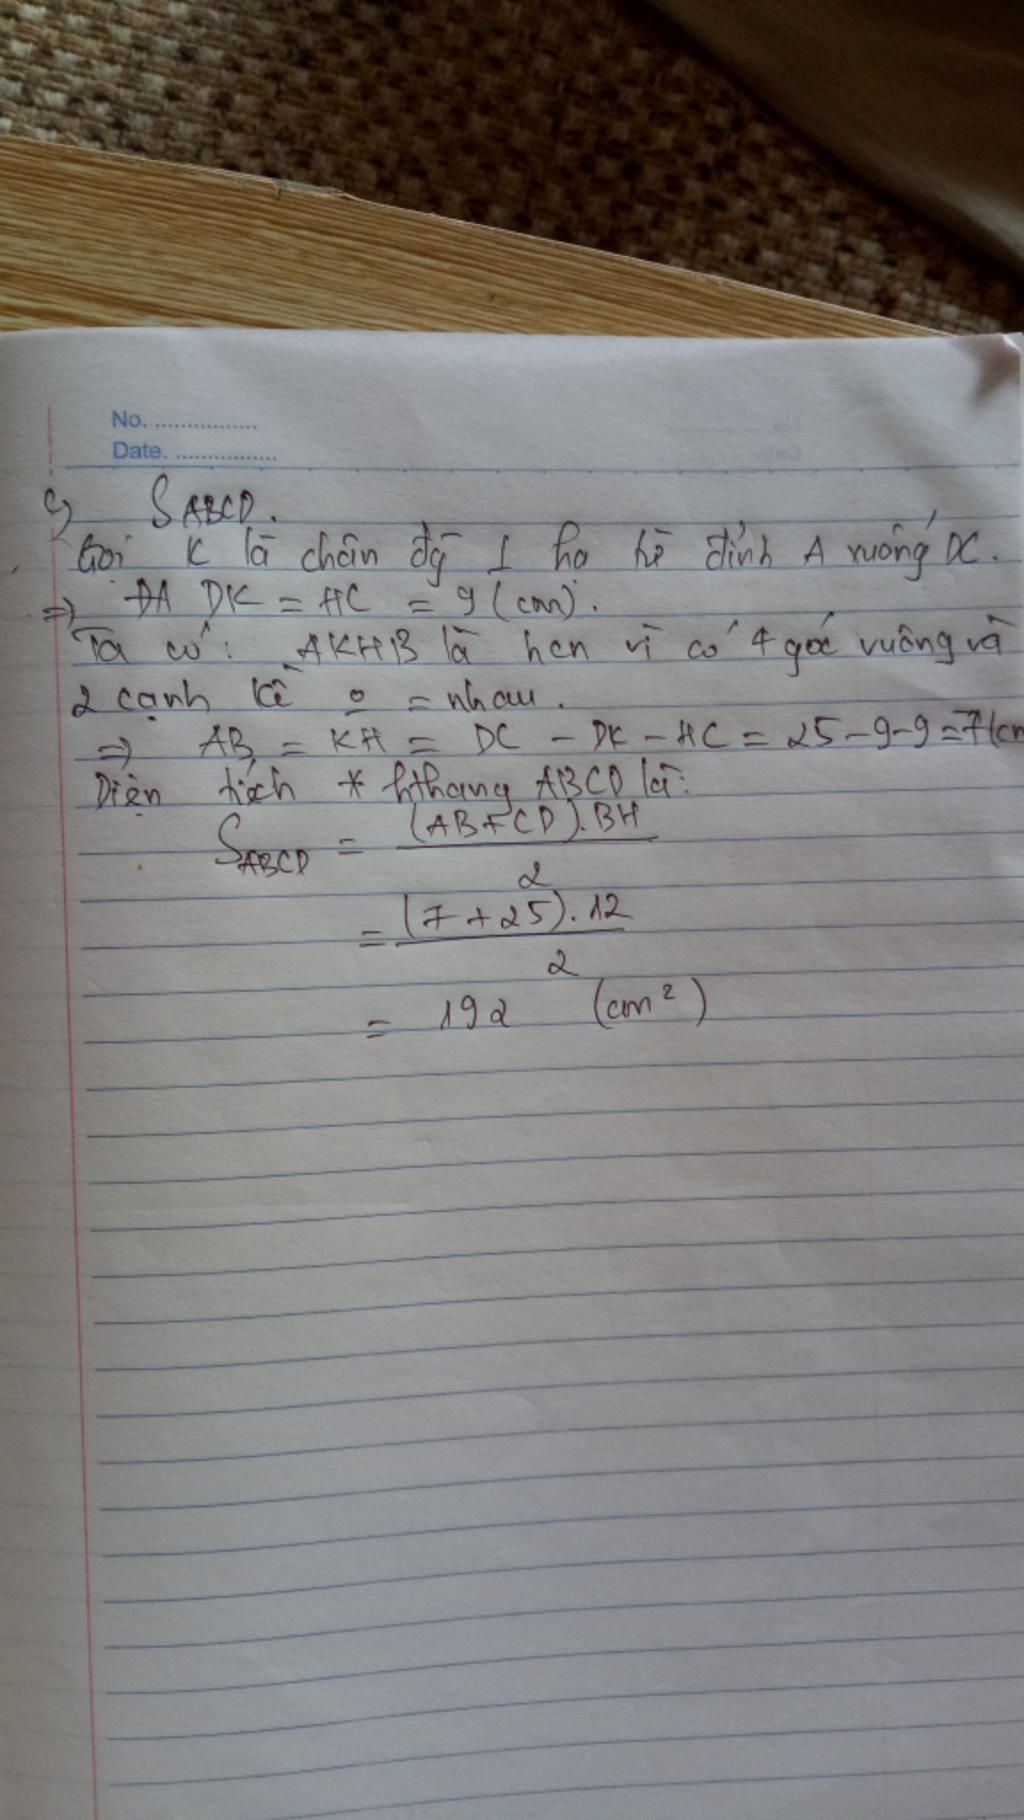 No. ................
Date. ................
c) SABCD.
Gọi K là chân đg ⊥ hạ từ đỉnh A xuống DC.
⇒ DK = HC = 9 (cm).
Ta có: AKHB là hcn vì có 4 góc vuông và
2 cạnh kề = nhau.
⇒ AB = KH = DC - DK - HC = 25-9-9=7(cm
Diện tích * hthang ABCD là:
SABCD = (AB+CD).BH / 2
= (7+25).12 / 2
= 192 (cm²)